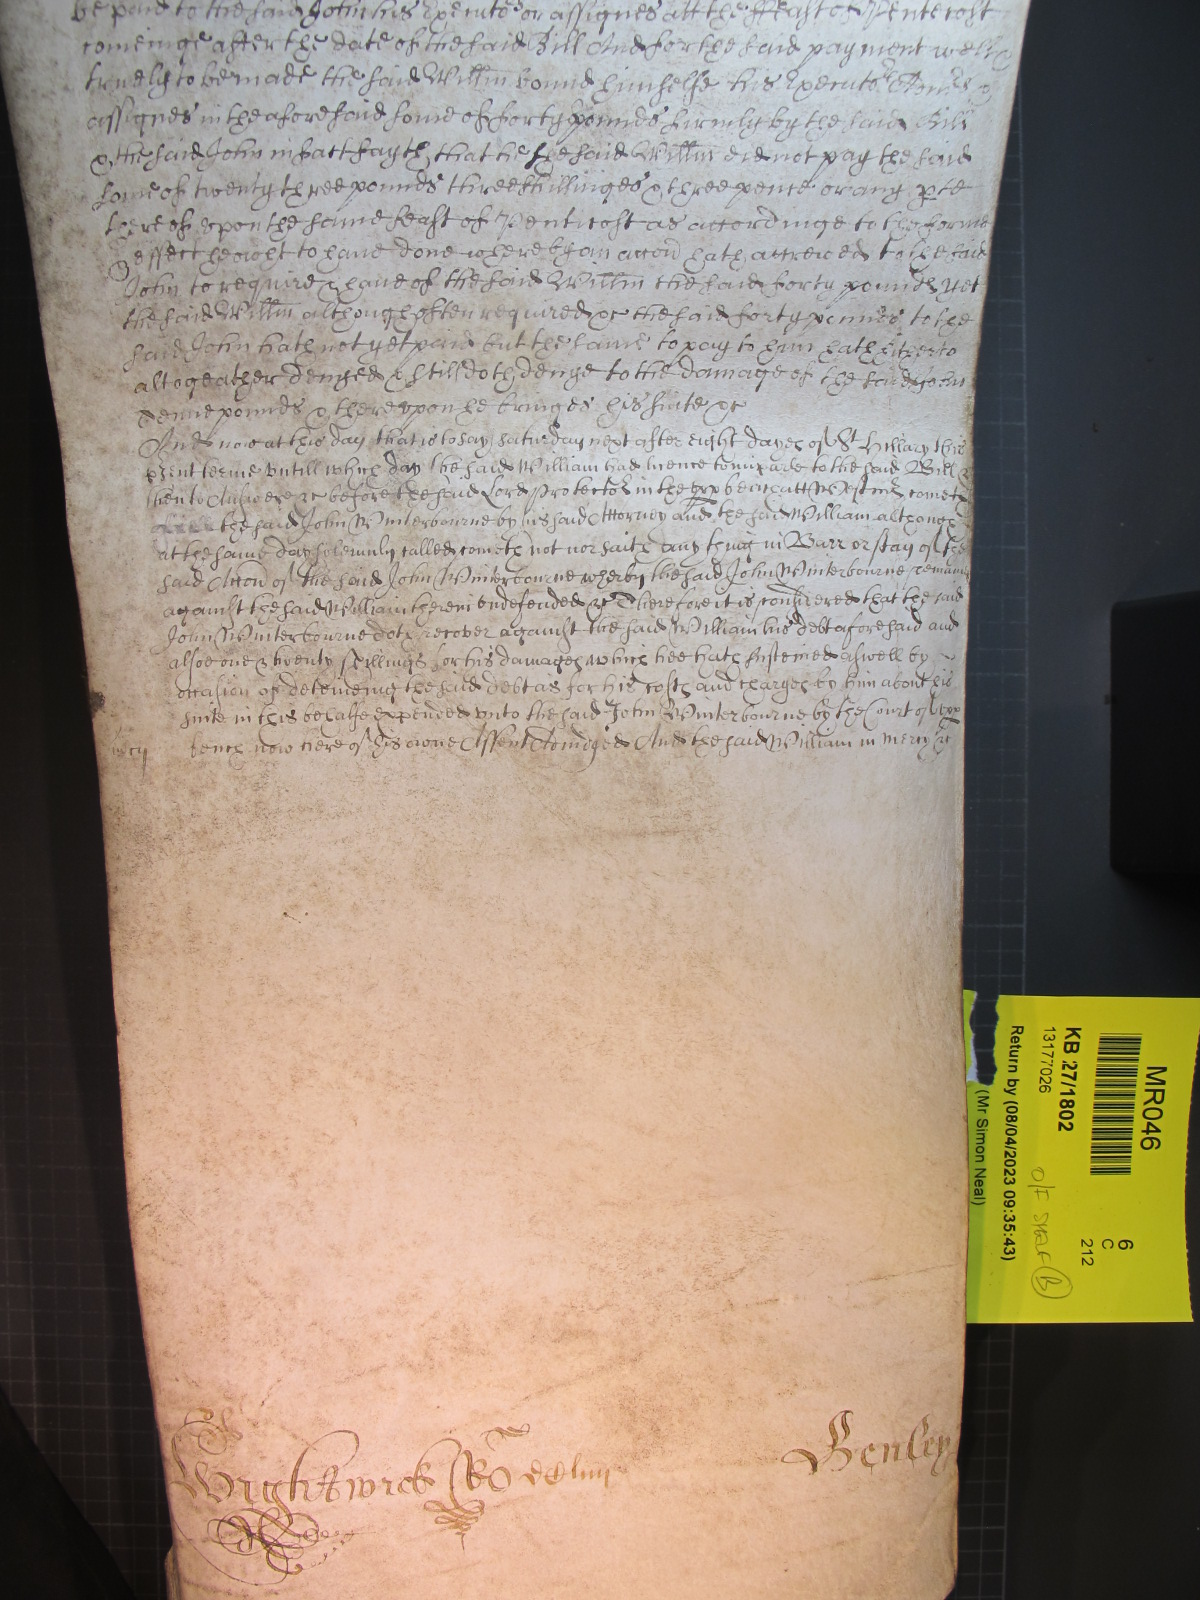 be paid to the said John his Executors or assignes att the ffeast of Pentecost
comeinge after the date of the said Bill And for the said payment well &
truely to be made the said Willm bound himselfe his Executors
assignes in the aforesaid some of forty pounds firmly by the said Bill
& the said John in fact sayth that he the said Willm did not pay the said
some of twenty three pounds three shillinges & three pence or any pte
thereof upon the same feast of Penticost as accordinge to the forme
& effect he ought to have done whereby an accon hath accrewed to the said
John to require & have of the said Willm the said forty pounds yet
the said Willm although often required &c the said forty pounds to the
said John hath not yet paid but the same to pay to him hath hitherto
altogeather denyed & still doth denye to the damage of the said John
Tenne pounds & thereupon he bringes his suite &c
And now at this day that is to say Saturday next after eight dayes of St Hillary this
psent terme untill which day the said William had licence to imparle to the said Bill &
then to Answere &c before the said Lord Protector in the upp bench att Westmr cometh
the said John Winterbourne by his said Attorney and the said William although
at the same day solemnly called cometh not nor saith any thing in Barr or stay of the
said Accon of the said John Winterbourne wherby the said John Winterbourne remains
against the said William therein undefended &c Therefore it is considered that the said
John Winterbourne doth recover against the said William his debt aforesaid and
alsoe one & twenty shillings for his damages which hee hath susteined aswell by
occasion of deteineing the said debt as for his costs and charges by him about his
suite in this behalfe expended unto the said John Winterbourne by the Court of upp
bench now here of his owne Assent Adiudged And the said William in mercy &c
mercy
Wightwick Ro
Henley
MR046
KB 27/1802
13177026
Return by (08/04/2023 09:35:43)
(Mr Simon Neal)
6
C
212
O/F SHELF (B)